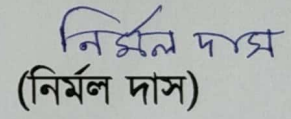 নিৰ্মল দাস
(নিৰ্মল দাস)